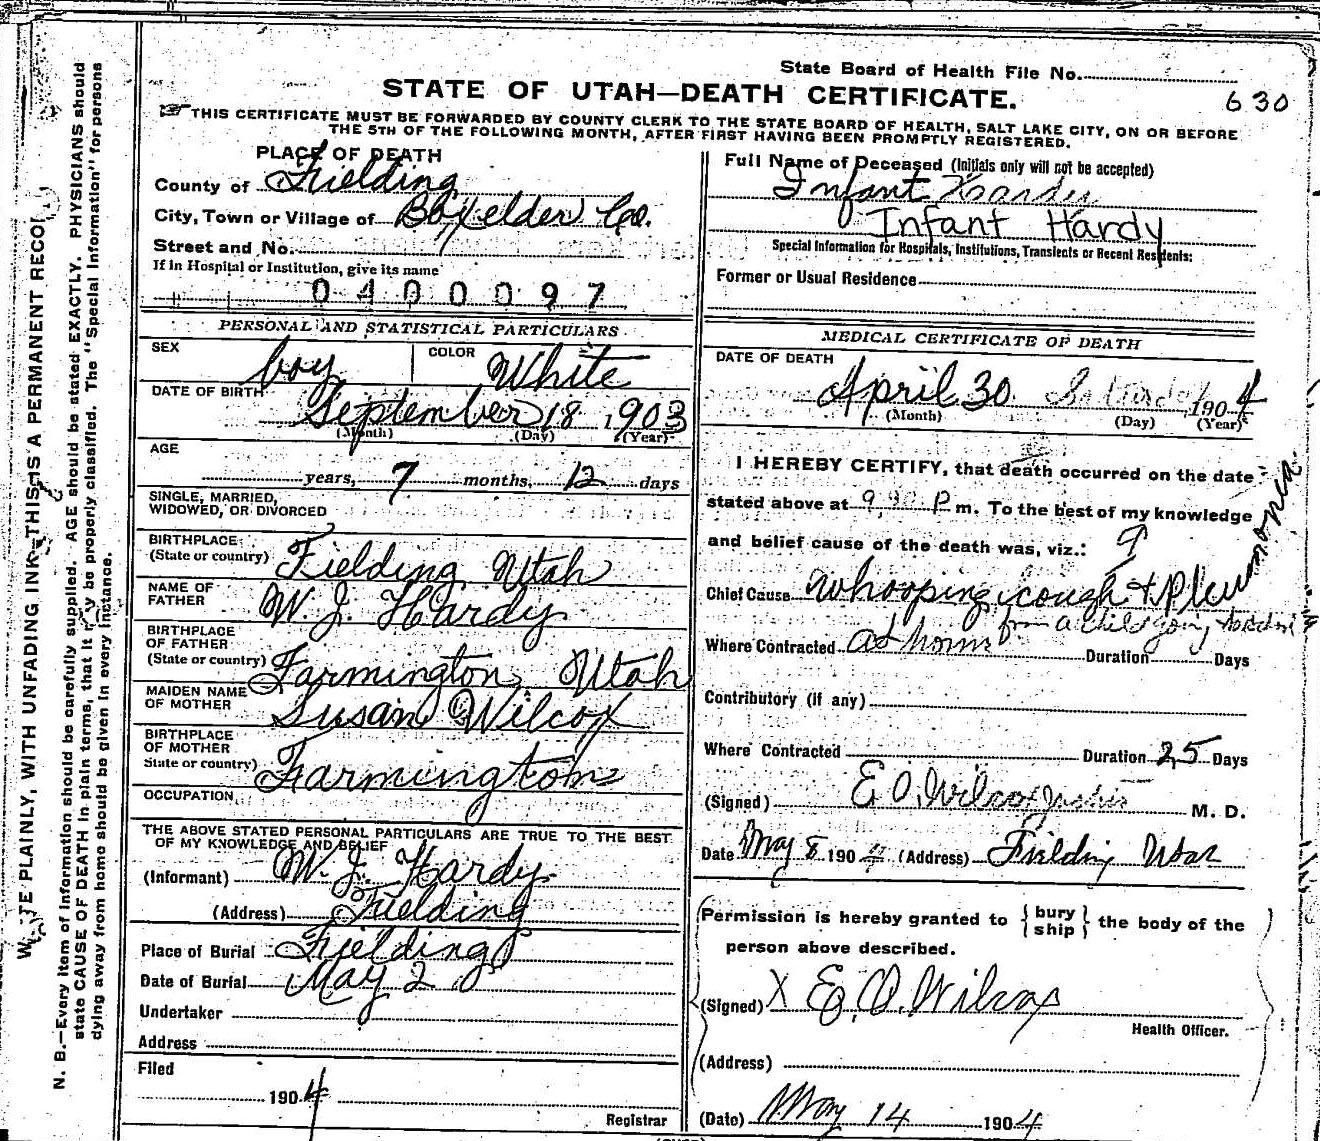 State Board of Health File No.
STATE OF UTAH—DEATH CERTIFICATE.
630
THIS CERTIFICATE MUST BE FORWARDED BY COUNTY CLERK TO THE STATE BOARD OF HEALTH, SALT LAKE CITY, ON OR BEFORE
THE 5TH OF THE FOLLOWING MONTH, AFTER FIRST HAVING BEEN PROMPTLY REGISTERED.
PLACE OF DEATH
County of Fielding
City, Town or Village of Boxelder Co.
Street and No.
If in Hospital or Institution, give its name
0400097
PERSONAL AND STATISTICAL PARTICULARS
SEX boy COLOR White
DATE OF BIRTH September 18 1903
(Month) (Day) (Year)
AGE
years, 7 months, 12 days
SINGLE, MARRIED,
WIDOWED, OR DIVORCED
BIRTHPLACE
(State or country) Fielding Utah
NAME OF
FATHER W. J. Hardy
BIRTHPLACE
OF FATHER
(State or country) Farmington, Utah
MAIDEN NAME
OF MOTHER Susan Wilcox
BIRTHPLACE
OF MOTHER
State or country) Farmington
OCCUPATION
THE ABOVE STATED PERSONAL PARTICULARS ARE TRUE TO THE BEST
OF MY KNOWLEDGE AND BELIEF
(Informant) W. J. Hardy
(Address) Fielding
Place of Burial Fielding
Date of Burial May 2
Undertaker
Address
Filed
1904
Registrar
Full Name of Deceased (Initials only will not be accepted)
Infant Hardy
Infant Hardy
Special Information for Hospitals, Institutions, Transients or Recent Residents:
Former or Usual Residence
MEDICAL CERTIFICATE OF DEATH
DATE OF DEATH
April 30 Saturday 1904
(Month) (Day) (Year)
I HEREBY CERTIFY, that death occurred on the date
stated above at 9,30 P m. To the best of my knowledge
and belief cause of the death was, viz.: 9
Chief Cause Whooping cough + Pleumonea
from a child going
Where Contracted at home Duration Days
Contributory (if any)
Where Contracted Duration 25 Days
(Signed) E. O. Wilcox M. D.
Date May 8 1904 (Address) Fielding Utah
Permission is hereby granted to { bury
ship } the body of the
person above described.
(Signed) X E. O. Wilcox
Health Officer.
(Address)
(Date) May 14 1904
WRITE PLAINLY, WITH UNFADING INK—THIS IS A PERMANENT RECO
N. B.—Every item of information should be carefully supplied. AGE should be stated EXACTLY. PHYSICIANS should
state CAUSE OF DEATH in plain terms, that it may be properly classified. The "Special Information" for persons
dying away from home should be given in every instance.